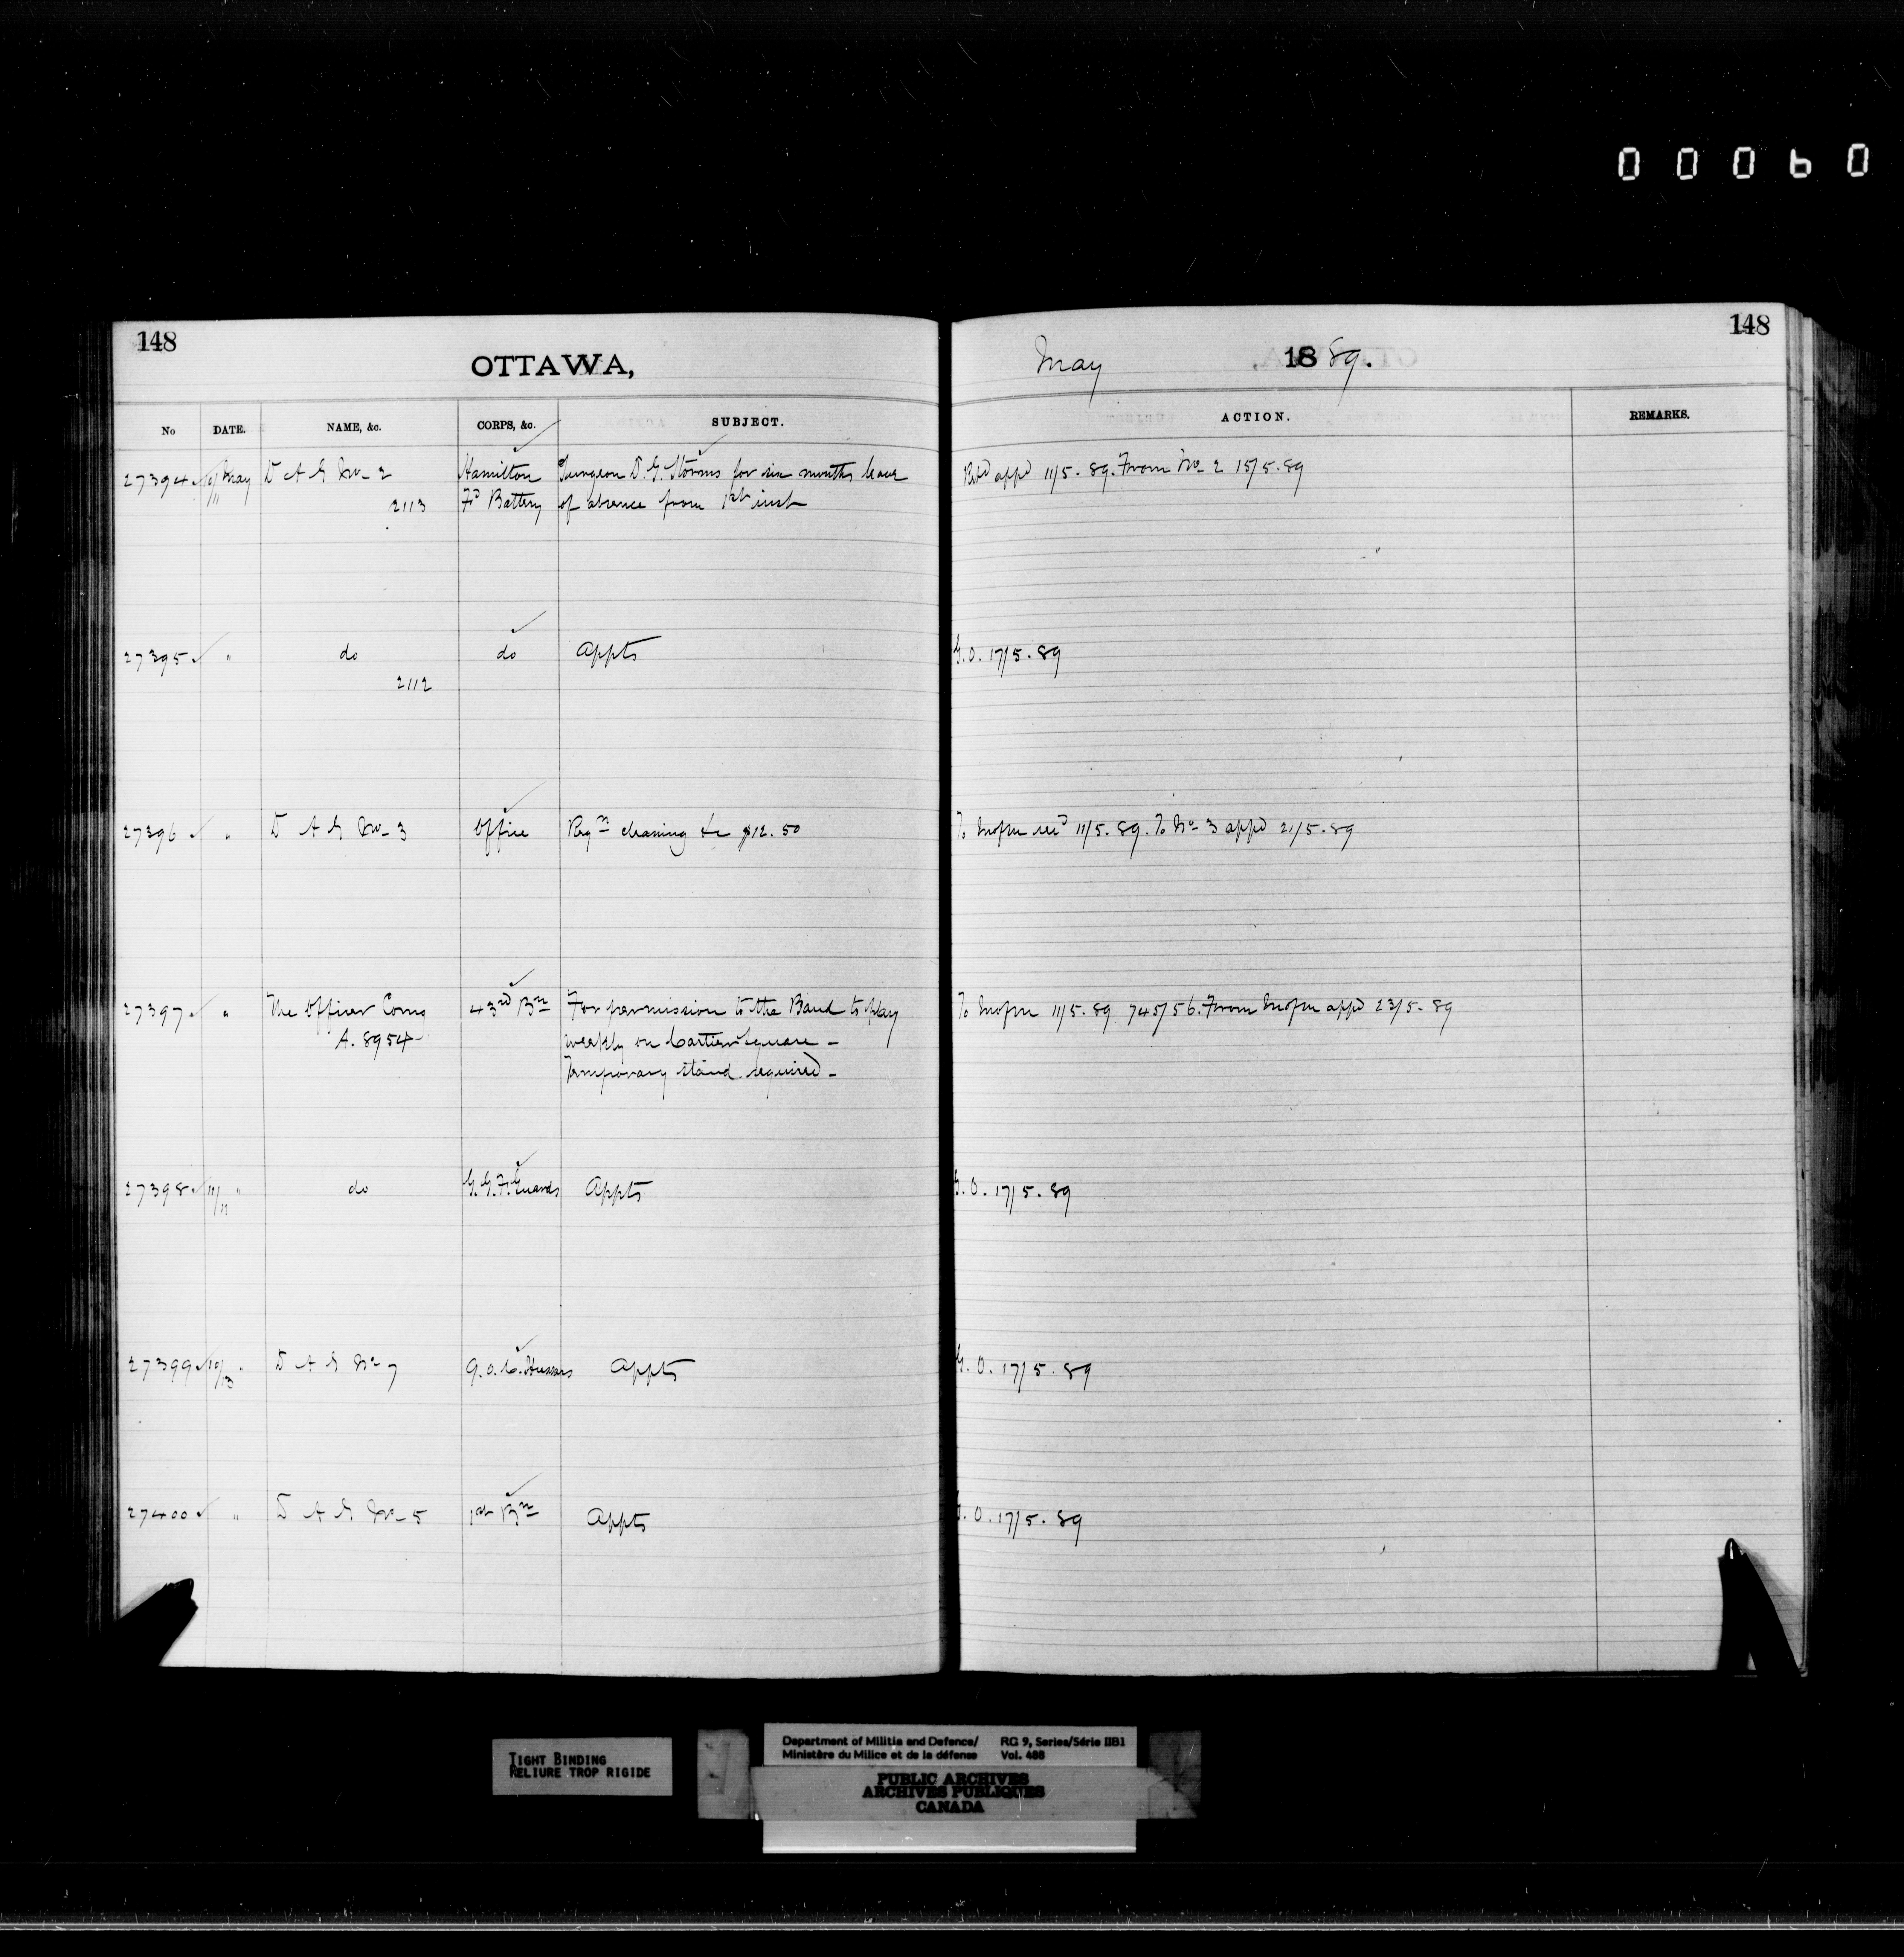 000060
148
148
OTTAWA,
May 1889.
No DATE. NAME, &c. CORPS, &c. SUBJECT. ACTION. REMARKS.
27394 10/11 May D A G No 2 Hamilton Surgeon D. G. Storms for six months leave Retd appd 11/5.89. From No 2 15/5.89
2113 Fd Battery of absence from 1st inst
27395 " do do Appts G.O. 17/5.89
2112
27396 " D A G No 3 Office Reqn cleaning &c $12.50 11/5.89. To No 3 appd 21/5.89
27397 " The Officer Comg 43rd Bn For permission to the Band to play 11/5.89 745/56. From appd 23/5.89
A. 8954 weekly on Cartier Square –
Temporary stand required –
27398 11/11 " do G.G.F. Guards Appts G.O. 17/5.89
27399 10/13 " D A G No 7 Q.O.C. Hussars Appts G.O. 17/5.89
27400 " D A G No 5 1st Bn Appts G.O. 17/5.89
TIGHT BINDING
RELIURE TROP RIGIDE
Department of Militia and Defence/ RG 9, Series/Série IIB1
Ministère du Milice et de la défense Vol. 488
PUBLIC ARCHIVES
ARCHIVES PUBLIQUES
CANADA